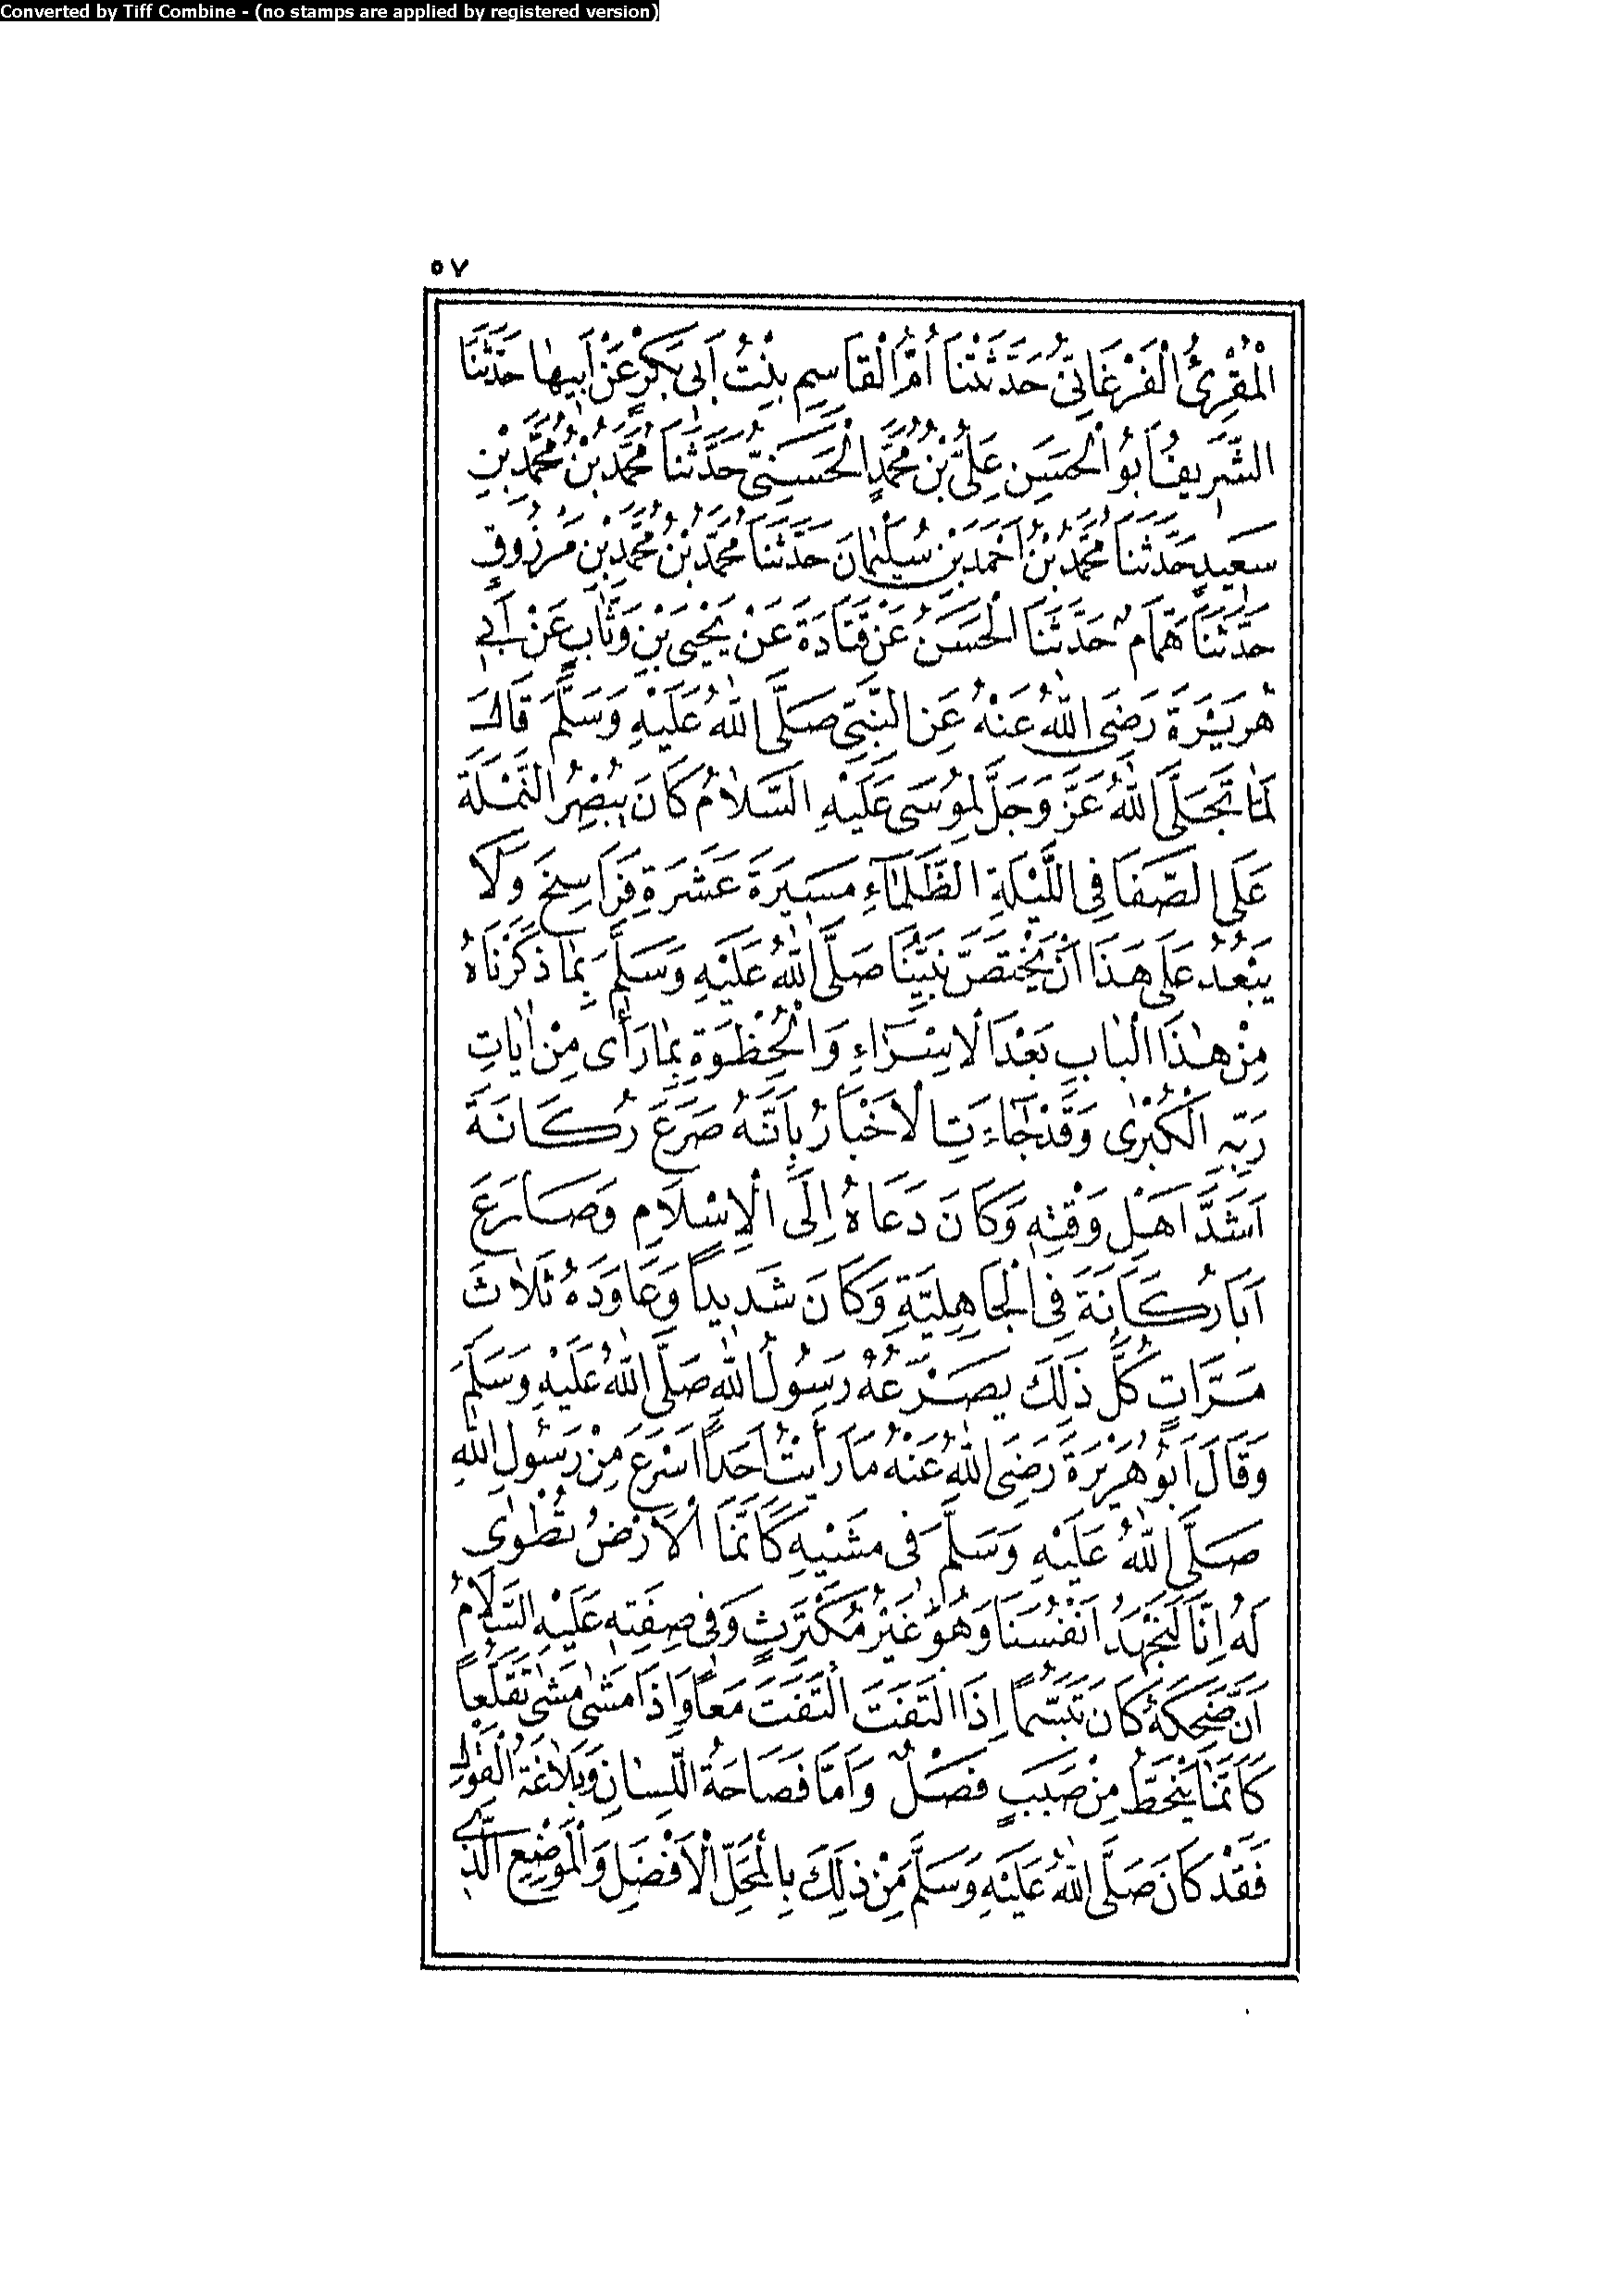 Converted by Tiff Combine - (no stamps are applied by registered version)
٥٧
الْمُقْرِئُ الْفَرْغَانِيُّ حَدَّثَتْنَا أُمُّ الْقَاسِمِ بِنْتُ أَبِى بَكْرٍ عَنْ أَبِيهَا حَدَّثَنَا
الشَّرِيفُ أَبُو الْحَسَنِ عَلِىُّ بْنُ مُحَمَّدٍ الْحَسَنِىُّ حَدَّثَنَا مُحَمَّدُ بْنُ مُحَمَّدِ بْنِ
سَعِيدٍ حَدَّثَنَا مُحَمَّدُ بْنُ أَحْمَدَ بْنِ سُلَيْمَانَ حَدَّثَنَا مُحَمَّدُ بْنُ مُحَمَّدِ بْنِ مَرْزُوقٍ
حَدَّثَنَا هَمَّامٌ حَدَّثَنَا الْحَسَنُ عَنْ قَتَادَةَ عَنْ يَحْيَى بْنِ وَثَّابٍ عَنْ أَبِى
هُرَيْرَةَ رَضِىَ اللهُ عَنْهُ عَنِ النَّبِىِّ صَلَّى اللهُ عَلَيْهِ وَسَلَّمَ قَالَ
لَمَّا تَجَلَّى اللهُ عَزَّ وَجَلَّ لِمُوسَى عَلَيْهِ السَّلَامُ كَانَ يُبْصِرُ النَّمْلَةَ
عَلَى الصَّفَا فِى اللَّيْلَةِ الظَّلْمَاءِ مَسِيرَةَ عَشَرَةِ فَرَاسِخَ وَلَا
يَبْعُدُ عَلَى هَذَا أَنْ يَخْتَصَّ نَبِيُّنَا صَلَّى اللهُ عَلَيْهِ وَسَلَّمَ بِمَا ذَكَرْنَاهُ
مِنْ هٰذَا الْبَابِ بَعْدَ الْاِسْرَاءِ وَالْحُظْوَةِ بِمَا رَأَى مِنْ اٰيَاتِ
رَبِّهِ الْكُبْرٰى وَقَدْ جَاءَتِ الْأَخْبَارُ بِأَنَّهُ صَرَعَ رُكَانَةَ
اَشَدَّ اَهْلِ وَقْتِهِ وَكَانَ دَعَاهُ إِلَى الْإِسْلَامِ وَصَارَعَ
اَبَا رُكَانَةَ فِى الْجَاهِلِيَّةِ وَكَانَ شَدِيداً وَعَاوَدَهُ ثَلَاثَ
مَرَّاتٍ كُلَّ ذٰلِكَ يَصْرَعُهُ رَسُولُ اللهِ صَلَّى اللهُ عَلَيْهِ وَسَلَّمَ
وَقَالَ اَبُو هُرَيْرَةَ رَضِىَ اللهُ عَنْهُ مَا رَأَيْتُ اَحَداً اَسْرَعَ مِنْ رَسُولِ اللهِ
صَلَّى اللهُ عَلَيْهِ وَسَلَّمَ فِى مَشْيِهِ كَأَنَّمَا الْأَرْضُ تُطْوٰى
لَهُ اِنَّا لَنَجْهَدُ اَنْفُسَنَا وَهُوَ غَيْرُ مُكْتَرِثٍ وَفِى صِفَتِهِ عَلَيْهِ السَّلَامُ
اَنَّ ضَحِكَهُ كَانَ تَبَسُّمًا اِذَا الْتَفَتَ الْتَفَتَ مَعاً وَاِذَا مَشٰى مَشٰى تَقَلُّعاً
كَأَنَّمَا يَنْحَطُّ مِنْ صَبَبٍ فَصْلٌ وَاَمَّا فَصَاحَةُ اللِّسَانِ وَبَلَاغَةُ الْقَوْلِ
فَقَدْ كَانَ صَلَّى اللهُ عَلَيْهِ وَسَلَّمَ مِنْ ذٰلِكَ بِالْمَحَلِّ الْأَفْضَلِ وَالْمَوْضِعِ الَّذِى